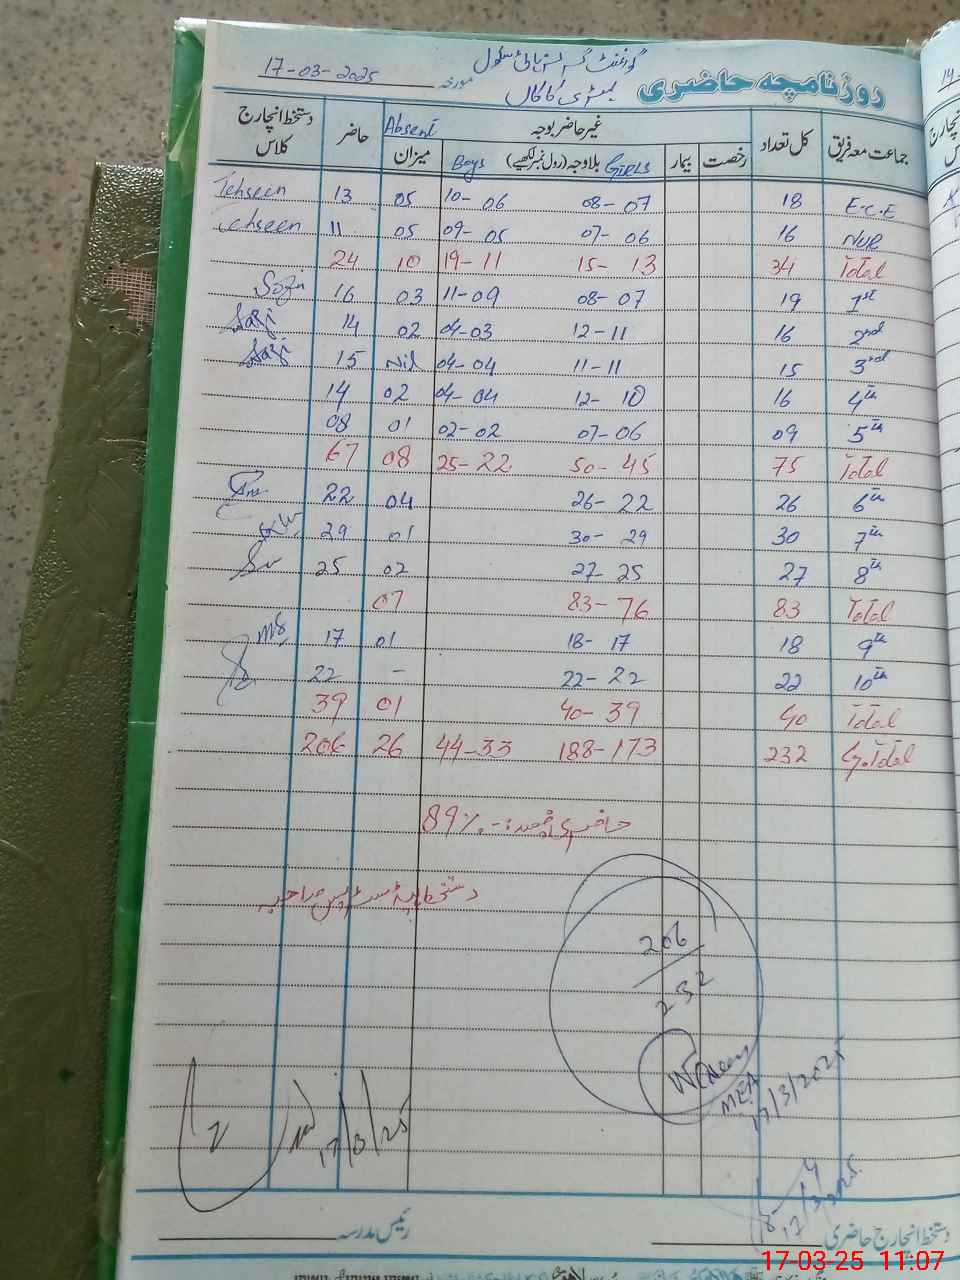 گورنمنٹ گرلز ہائی سکول
روزنامچہ حاضری مورخہ 17-03-2025
جماعت معہ فریق کل تعداد غیر حاضر بوجہ Absent حاضر دستخط انچارج کلاس
رخصت بیمار GIRLS بلاوجہ (رول نمبر لکھیے) Boys میزان
Tehseen 13 05 10-06 08-07 18 E.C.E
Tehseen 11 05 09-05 07-06 16 NUR
24 10 19-11 15-13 34 Total
16 03 11-09 08-07 19 1st
14 02 04-03 12-11 16 2nd
15 Nil 04-04 11-11 15 3rd
14 02 04-04 12-10 16 4th
08 01 02-02 07-06 09 5th
67 08 25-22 50-45 75 Total
22 04 26-22 26 6th
29 01 30-29 30 7th
25 02 27-25 27 8th
07 83-76 83 Total
17 01 18-17 18 9th
22 - 22-22 22 10th
39 01 40-39 40 Total
206 26 44-33 188-173 232 G.Total
حاضری فیصد:- 89%
دستخط ہیڈ مسٹریس صاحبہ
206
232
MEA
17/3/2025
17/3/25
17/3/2025
دستخط انچارج حاضری رئیس مدرسہ
17-03-25 11:07